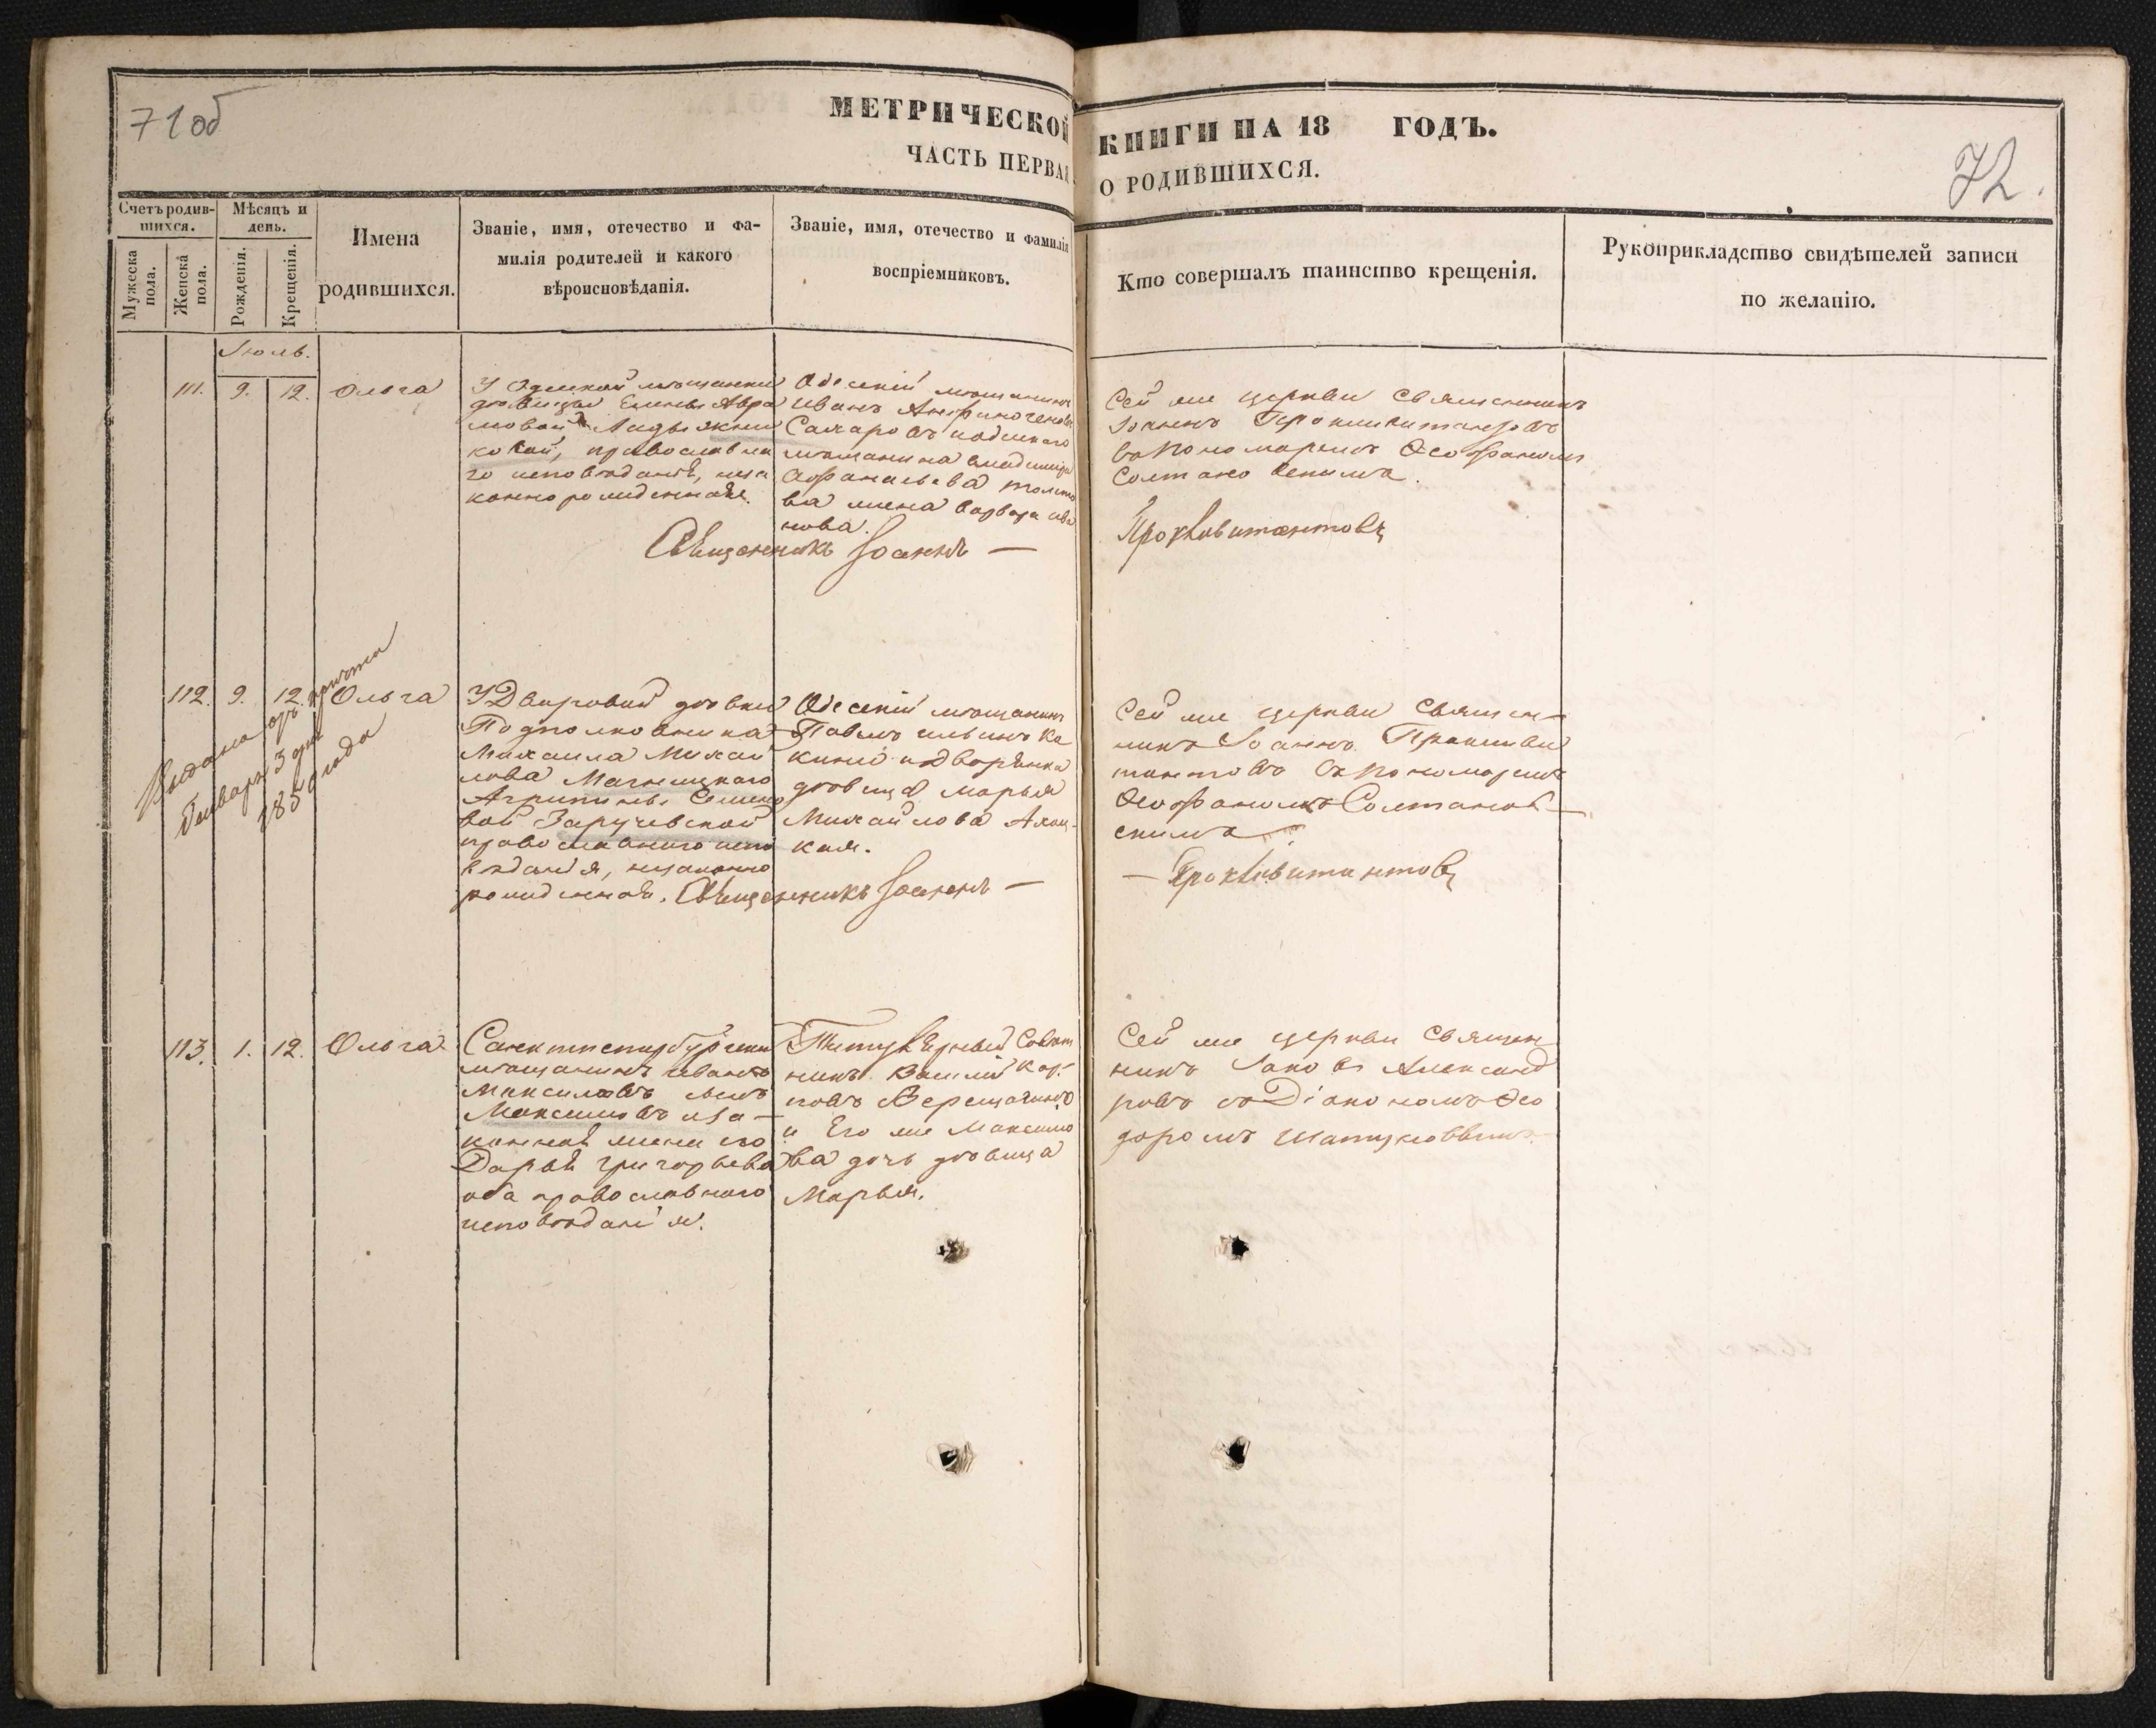 71об
МЕТРИЧЕСКОЙ КНИГИ НА 18 ГОДЪ.
ЧАСТЬ ПЕРВАЯ О РОДИВШИХСЯ.
72.
Счетъ родив-
шихся.
Мужеска
пола.
Женска
пола.
Мѣсяцъ и
день.
Рожденія.
Крещенія.
Имена
родившихся.
Званіе, имя, отечество и фа-
милія родителей и какого
вѣроисповѣданія.
Званіе, имя, отечество и фамилія
воспріемниковъ.
Кто совершалъ таинство крещенія.
Рукоприкладство свидѣтелей записи
по желанію.
Іюль.
111. 9. 12. Ольга
У Одесской мѣщанки
дѣвицы Елены Авра
мовой
православна
го исповѣданія, неза
коннорожденная.
Одескій мѣщанинъ
Иванъ
Сахаровъ и одескаго
мѣщанина
Афанасьева
ва жена Варвара Ива
нова.
Священникъ Іоаннъ —
Сей же церкви священникъ
Іоаннъ
съ пономаремъ Ѳеофаномъ
Солтановскимъ.
112. 9. 12. Ольга
Выдана
Генваря 3 дня
1850 года
У Дворовой дѣвки
Подполковника
Михаила Михай
лова Магницкаго
Агрипины Семено
вой Заручевской
православнаго испо
вѣданія, незаконно
рожденная. Священникъ Іоаннъ —
Одескій мѣщанинъ
Павелъ Ильинъ Ка
и дворянка
дѣвица Марья
Михайлова
кая.
Сей же церкви священ-
никъ Іоаннъ
съ пономаремъ
Ѳеофаномъ Солтанов-
скимъ.
113. 1. 12. Ольга
Санктпетербургскій
мѣщанинъ Иванъ
Максимовъ сынъ
Максимовъ и за-
конная жена его
Дарья Григорьева
оба православнаго
исповѣданія.
Титулярный Совѣт
никъ Василій Кар-
повъ Верещагинъ
и Его же Максимо
ва дочь дѣвица
Марья.
Сей же церкви священ
никъ Іаковъ Александ
ровъ съ Діакономъ Ѳео
доромъ